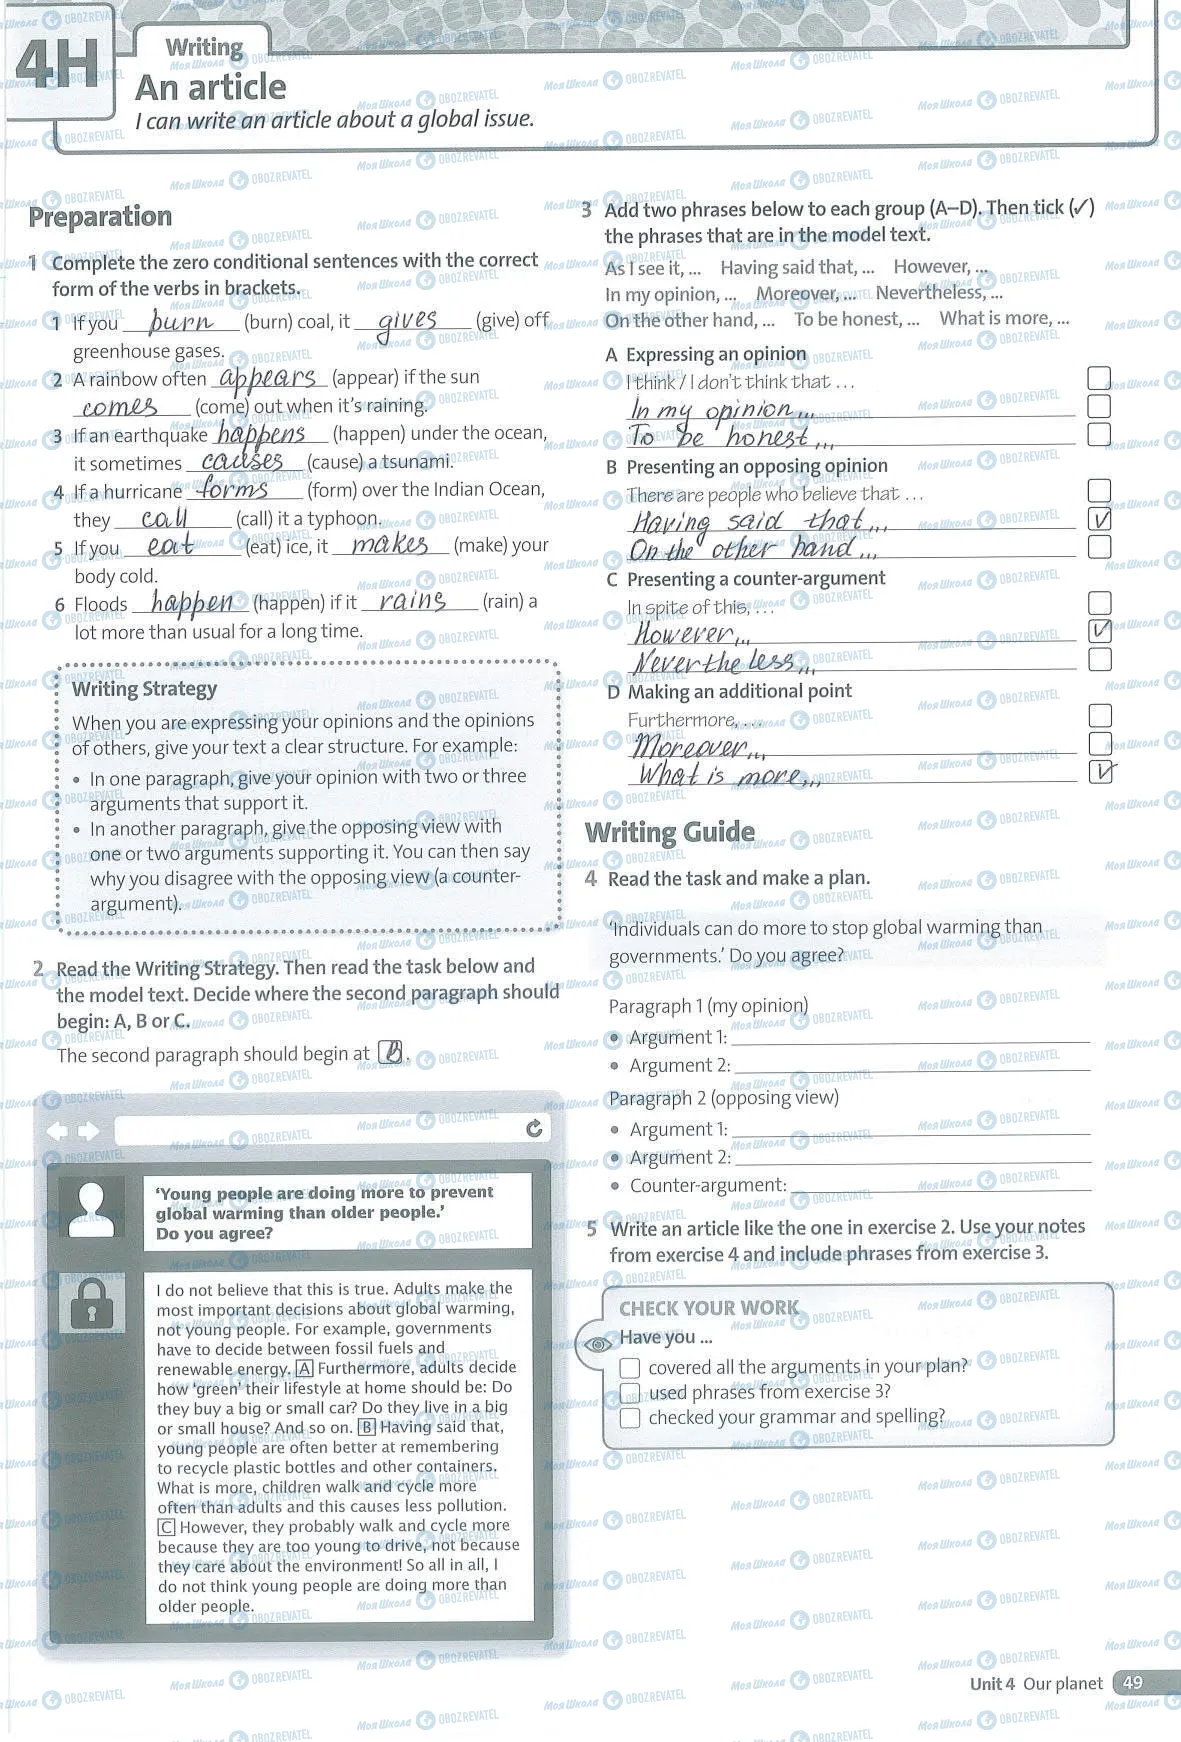 4H
Writing
An article
I can write an article about a global issue.
Preparation
1 Complete the zero conditional sentences with the correct
form of the verbs in brackets.
1 If you burn (burn) coal, it gives (give) off
greenhouse gases.
2 A rainbow often appears (appear) if the sun
comes (come) out when it's raining.
3 If an earthquake happens (happen) under the ocean,
it sometimes causes (cause) a tsunami.
4 If a hurricane forms (form) over the Indian Ocean,
they call (call) it a typhoon.
5 If you eat (eat) ice, it makes (make) your
body cold.
6 Floods happen (happen) if it rains (rain) a
lot more than usual for a long time.
Writing Strategy
When you are expressing your opinions and the opinions
of others, give your text a clear structure. For example:
• In one paragraph, give your opinion with two or three
arguments that support it.
• In another paragraph, give the opposing view with
one or two arguments supporting it. You can then say
why you disagree with the opposing view (a counter-
argument).
2 Read the Writing Strategy. Then read the task below and
the model text. Decide where the second paragraph should
begin: A, B or C.
The second paragraph should begin at B.
'Young people are doing more to prevent
global warming than older people.'
Do you agree?
I do not believe that this is true. Adults make the
most important decisions about global warming,
not young people. For example, governments
have to decide between fossil fuels and
renewable energy. A Furthermore, adults decide
how 'green' their lifestyle at home should be: Do
they buy a big or small car? Do they live in a big
or small house? And so on. B Having said that,
young people are often better at remembering
to recycle plastic bottles and other containers.
What is more, children walk and cycle more
often than adults and this causes less pollution.
C However, they probably walk and cycle more
because they are too young to drive, not because
they care about the environment! So all in all, I
do not think young people are doing more than
older people.
3 Add two phrases below to each group (A–D). Then tick (✓)
the phrases that are in the model text.
As I see it, ... Having said that, ... However, ...
In my opinion, ... Moreover, ... Nevertheless, ...
On the other hand, ... To be honest, ... What is more, ...
A Expressing an opinion
I think / I don't think that ...
In my opinion,...
To be honest,...
B Presenting an opposing opinion
There are people who believe that ...
Having said that,...
On the other hand,...
C Presenting a counter-argument
In spite of this, ...
However,...
Nevertheless,...
D Making an additional point
Furthermore, ...
Moreover,...
What is more,...
Writing Guide
4 Read the task and make a plan.
'Individuals can do more to stop global warming than
governments.' Do you agree?
Paragraph 1 (my opinion)
• Argument 1:
• Argument 2:
Paragraph 2 (opposing view)
• Argument 1:
• Argument 2:
• Counter-argument:
5 Write an article like the one in exercise 2. Use your notes
from exercise 4 and include phrases from exercise 3.
CHECK YOUR WORK
Have you ...
covered all the arguments in your plan?
used phrases from exercise 3?
checked your grammar and spelling?
Unit 4 Our planet 49
Моя Школа OBOZREVATEL